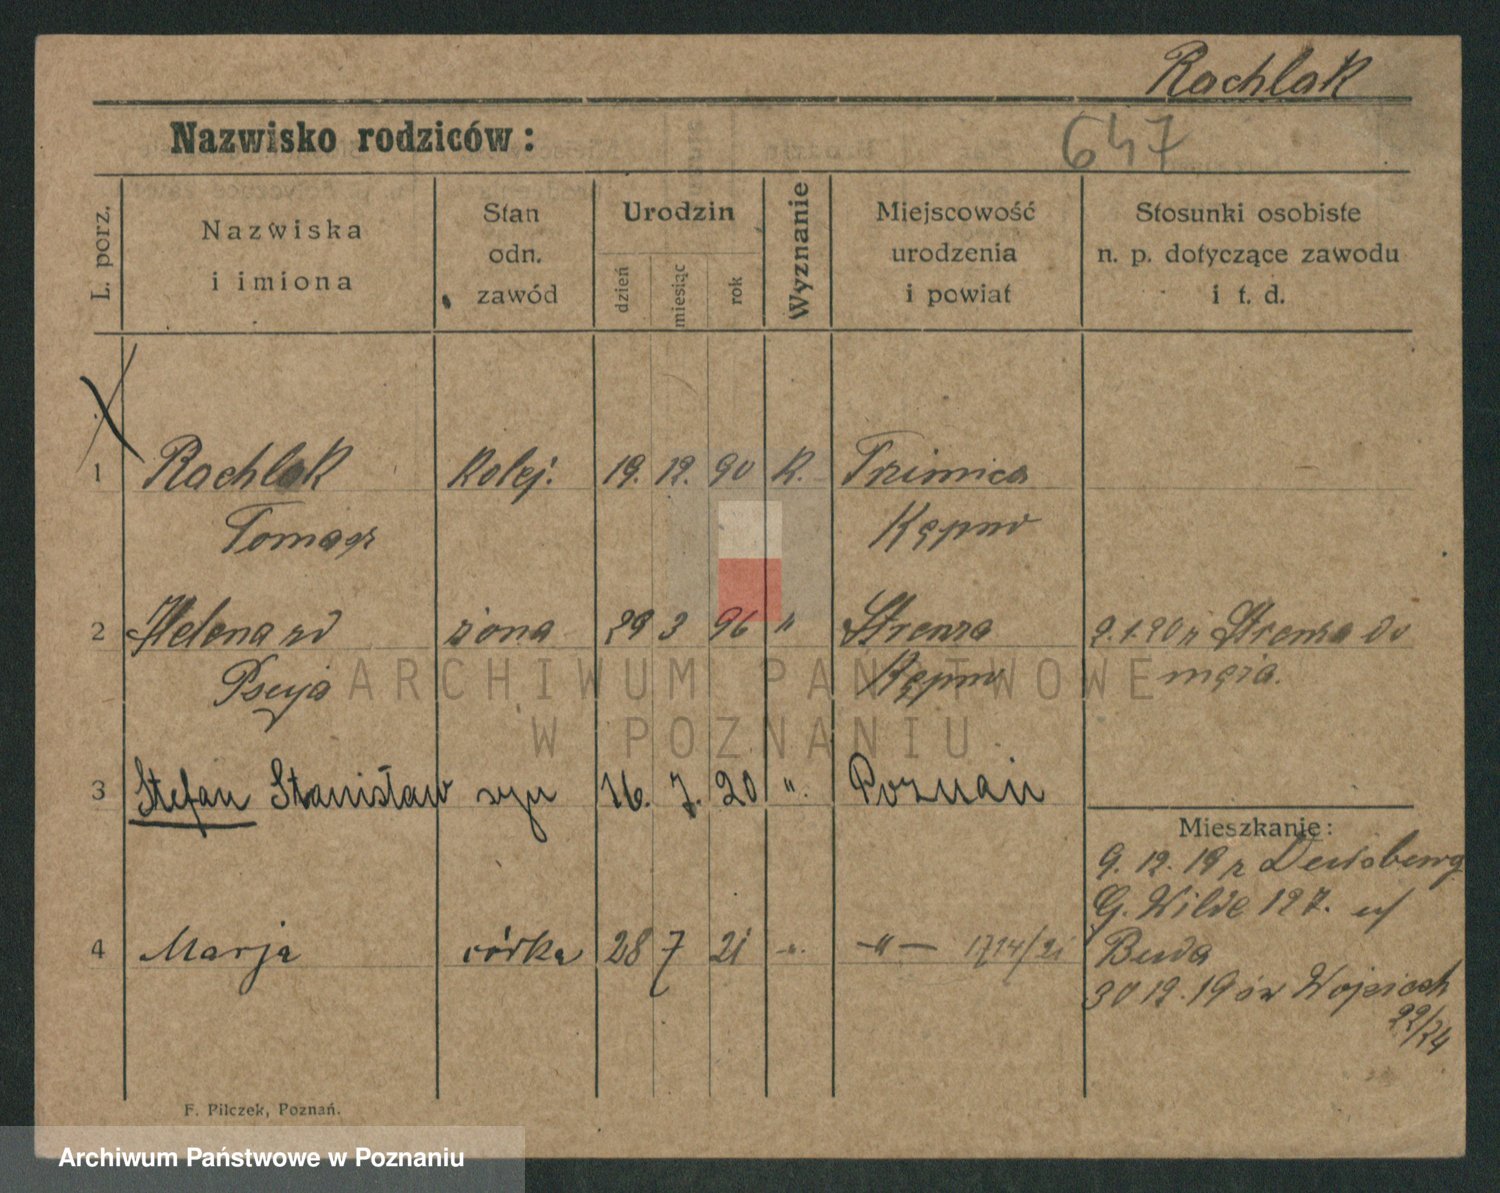 Rachlak
Nazwisko rodziców:
647
L. porz.
Nazwiska
i imiona
Stan
odn.
zawód
Urodzin
dzień
miesiąc
rok
Wyznanie
Miejscowość
urodzenia
i powiat
Stosunki osobiste
n. p. dotyczące zawodu
i t. d.
1 Rachlak Kolej. 19. 12. 90 K. Trzinica
Tomasz Kępno
2 Helena zd żona 29 3 96 " Strenza 2.1.20 z Strenza do
Pseyja Kępno męża.
3 Stefan Stanisław syn 16. 7. 20 ". Poznań
Mieszkanie:
9. 12. 19 z
G. Wilde 127.
4 Marja córka 28 7 21 -"- -"- 1714/21 Buda
30 12. 19 św Wojciech
22/24
F. Pilczek, Poznań.
ARCHIWUM PAŃSTWOWE
W POZNANIU
Archiwum Państwowe w Poznaniu